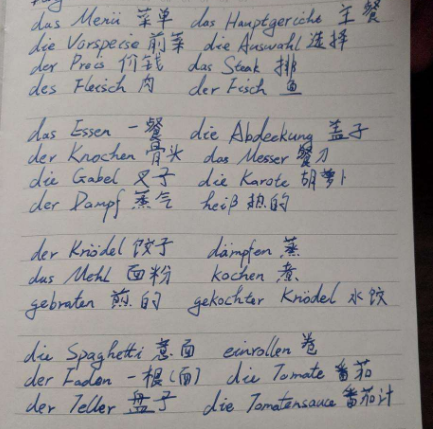 das Menü 菜单 das Hauptgericht 主餐
die Vorspeise 前菜 die Auswahl 选择
der Preis 价钱 das Steak 排
des Fleisch 肉 der Fisch 鱼
das Essen 一餐 die Abdeckung 盖子
der Knochen 骨头 das Messer 餐刀
die Gabel 叉子 die Karote 胡萝卜
der Dampf 蒸气 heiß 热的
der Knödel 饺子 dämpfen 蒸
das Mehl 面粉 kochen 煮
gebraten 煎的 gekochter Knödel 水饺
die Spaghetti 意面 einrollen 卷
der Faden 一根(面) die Tomate 番茄
der Teller 盘子 die Tomatensauce 番茄汁